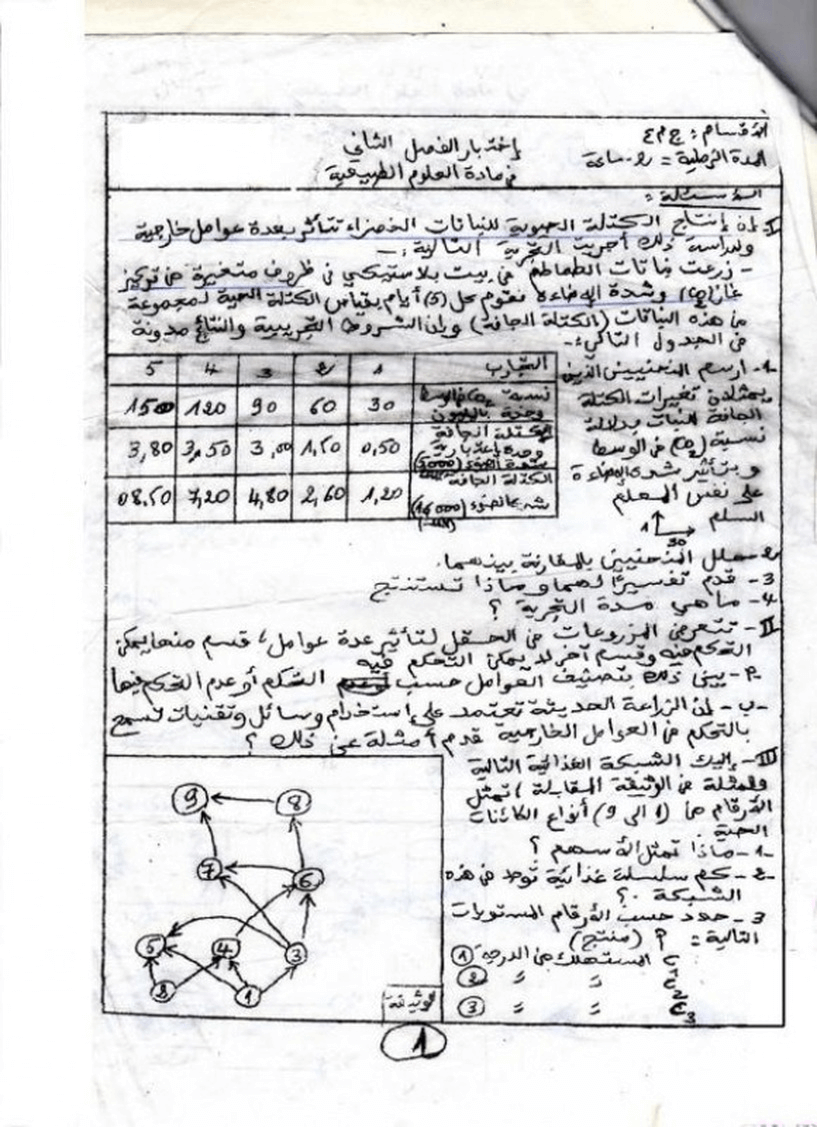 الأقسام: ج م ع
المدة الزمنية = 2 ساعة
إختبار الفصل الثاني
في مادة العلوم الطبيعية
الأسئلة:
I - إن إنتاج الكتلة الحيوية للنباتات الخضراء تتأثر بعدة عوامل خارجية
ولدراسة ذلك أجريت التجربة التالية: -
- زرعت نباتات الطماطم في بيت بلاستيكي في ظروف متغيرة من تركيز
غاز (CO2) وشدة الإضاءة نقوم كل (5) أيام بقياس الكتلة الحية لمجموعة
من هذه النباتات (الكتلة الجافة) وإن الشروط التجريبية والنتائج مدونة
في الجدول التالي: -
التجارب 1 2 3 4 5
نسبة CO2 في الوسط
وحدة بالمليون
30 60 90 120 1500
الكتلة الجافة
وحدة إعتبارية
شدة الضوء (5000)
0,50 1,50 3,00 3,50 3,80
الكتلة الجافة
شدة الضوء (16000)
1,20 2,60 4,80 7,20 08.50
1- ارسم المنحنيين الذين
يمثلان تغيرات الكتلة
الجافة للنبات بدلالة
نسبة (CO2) في الوسط
وبتأثير شدة الإضاءة
على نفس المعلم
السلم 1
30
2- حلل المنحنيين بالمقارنة بينهما.
3- قدم تفسيرًا لهما وماذا تستنتج
4- ما هي مدة التجربة ؟
II - تتعرض المزروعات في الحقل لتأثير عدة عوامل، قسم منها يمكن
التحكم فيه وقسم آخر لا يمكن التحكم فيه
- أ - بين ذلك بتصنيف العوامل حسب التحكم أو عدم التحكم فيها
- ب - إن الزراعة الحديثة تعتمد على إستخدام وسائل وتقنيات تسمح
بالتحكم في العوامل الخارجية قدم أمثلة عن ذلك ؟
III - إليك الشبكة الغذائية التالية
والممثلة في الوثيقة المقابلة، تمثل
الأرقام من (1 الى 9) أنواع الكائنات
الحية
1- ماذا تمثل الأسهم ؟
2- كم سلسلة غذائية توجد في هذه
الشبكة ؟
3- حدد حسب الأرقام المستويات
التالية: م (منتج)
المستهلك من الدرجة 1
م2 " " 2
م3 " " 3
9 8
7 6
5 4 3
2 1
الوثيقة
1